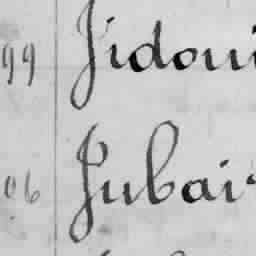 99 Jidoui
06 Jubair